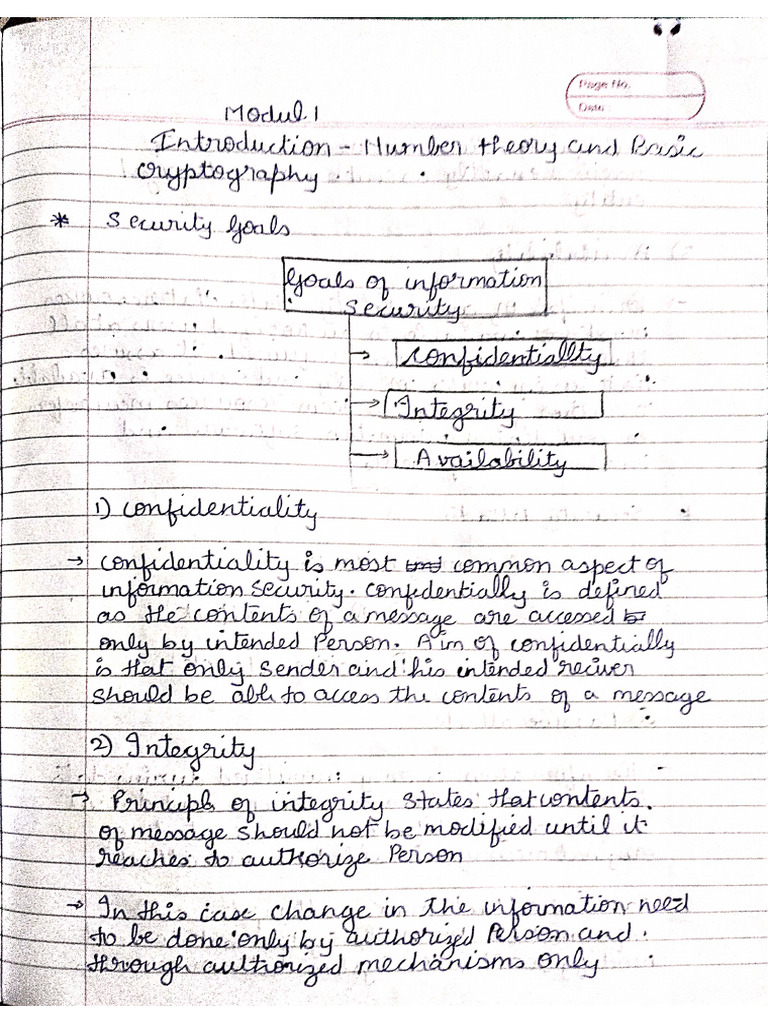 Page No.
Date
Modul.1
Introduction - Number theory and Basic
cryptography
* Security Goals
Goals of information
Security
Confidentiallty
Integrity
Availability
1) confidentiality
→ confidentiality is most common aspect of
information security. confidentially is defined
as the contents of a message are accessed
only by intended Person. Aim of confidentially
is that only Sender and his intended reciver
should be able to access the contents of a message
2) Integrity
→ Principls of integrity States that contents.
of message should not be modified until it
reaches to authorize Person
→ In this case change in the information need
to be done only by authorized Person and
through authorized mechanisms only